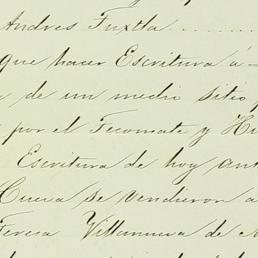 Andres Tuxtla
que hacer Escritura á
de un medio sitio
por el Tecomate y
Escritura de hoy ant
Cueva se vendieron a
Teresa Villanueva de